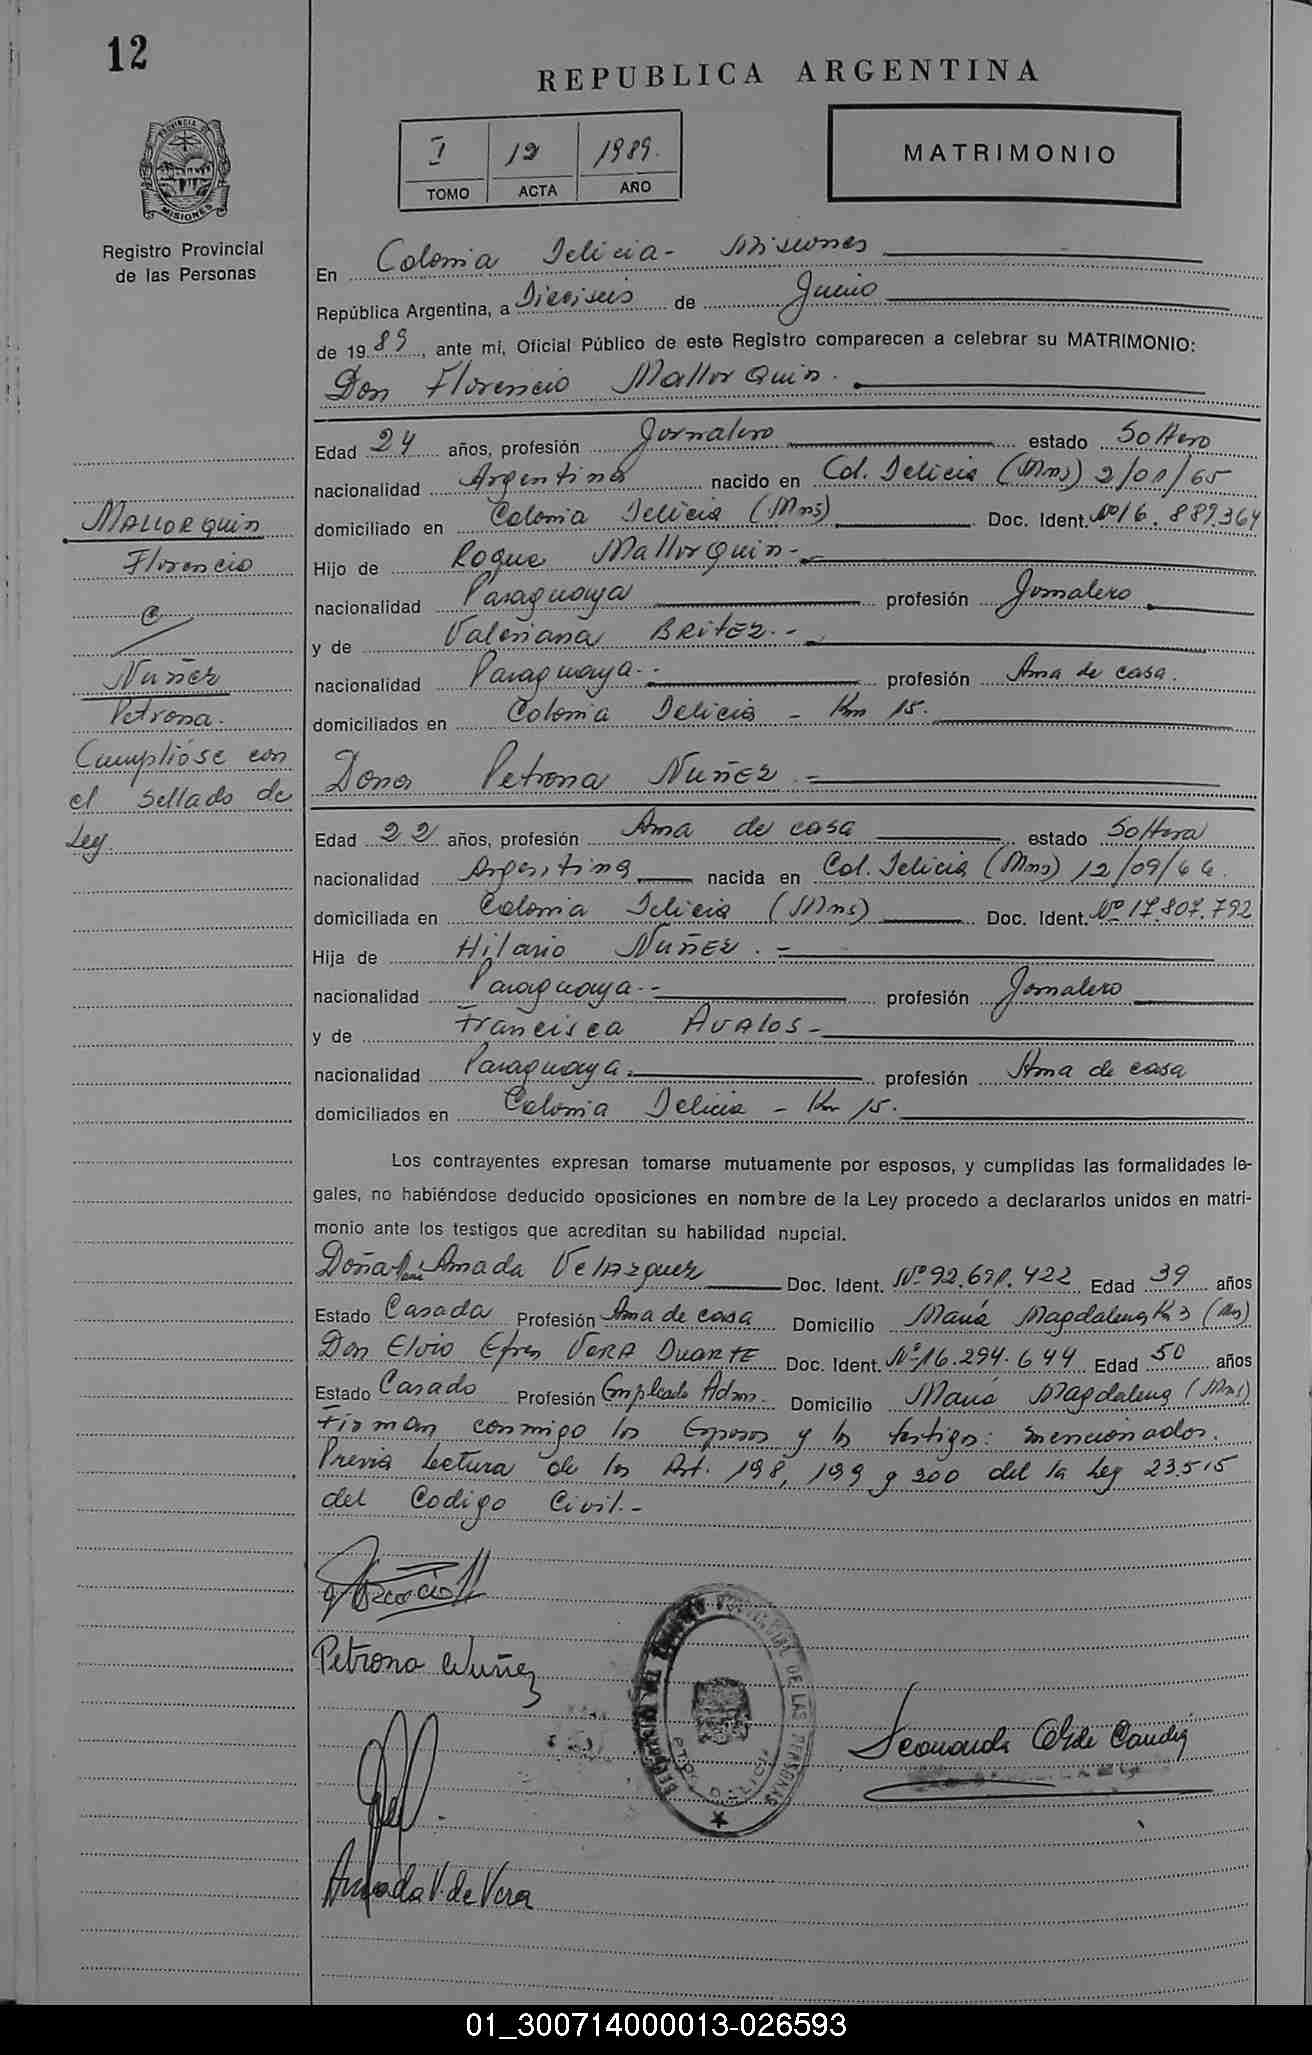 12
REPUBLICA ARGENTINA
PROVINCIA DE
MISIONES
Registro Provincial
de las Personas
I 12 1989.
TOMO ACTA AÑO
MATRIMONIO
En Colonia Delicia - Misiones
República Argentina, a Dieciseis de Junio
de 19 89, ante mí, Oficial Público de este Registro comparecen a celebrar su MATRIMONIO:
Don Florencio MallorQuin.
Edad 24 años, profesión Jornalero estado Soltero
nacionalidad Argentina nacido en Col. Delicia (Mns) 2/01/65
domiciliado en Colonia Delicia (Mns) Doc. Ident. Nº 16.889.364
Hijo de Roque MallorQuin -
nacionalidad Paraguaya profesión Jornalero
y de Valeriana BRitEz. -
nacionalidad Paraguaya - profesión Ama de casa.
domiciliados en Colonia Delicia - Km 15.
MALLORQUIN
Florencio
C
/
Nuñez
Petrona.
Cumplióse con
el sellado de
Ley
Dona Petrona NuñEz
Edad 22 años, profesión Ama de casa estado Soltera
nacionalidad Argentina nacida en Col. Delicia (Mns) 12/09/66.
domiciliada en Colonia Delicia (Mns) Doc. Ident. Nº 17.807.792
Hija de Hilario NuñEz. -
nacionalidad Paraguaya - profesión Jornalero
y de Francisca AvAlos -
nacionalidad Paraguaya. profesión Ama de casa
domiciliados en Colonia Delicia - Km 15.
Los contrayentes expresan tomarse mutuamente por esposos, y cumplidas las formalidades le-
gales, no habiéndose deducido oposiciones en nombre de la Ley procedo a declararlos unidos en matri-
monio ante los testigos que acreditan su habilidad nupcial.
Doña Amada VelAzquez Doc. Ident. Nº 92.691.422 Edad 39 años
Estado Casada Profesión Ama de casa Domicilio María Magdalena K 3 (Mns)
Don Elvio Efren VeRA DuARTE Doc. Ident. Nº 16.294.644 Edad 50 años
Estado Casado Profesión Empleado Adm. Domicilio María Magdalena (Mns)
Firman conmigo los Esposos y los testigos: mencionados.
Previa Lectura de los Art. 198, 199 y 200 del la Ley 23.515
del Codigo Civil. -
Petrona Nuñez
Amada V. de Vera
01_300714000013-026593